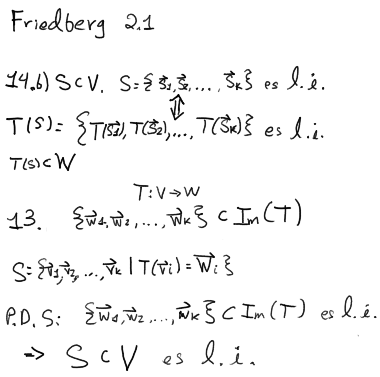 Friedberg 2.1
14.b) S⊂V. S={s⃗₁,s⃗₂,...,s⃗ₖ} es l.i.
⇕
T(S)={T(s⃗₁),T(s⃗₂),...,T(s⃗ₖ)} es l.i.
T(S)⊂W
T:V→W
13. {w⃗₁,w⃗₂,...,w⃗ₖ}⊂Im(T)
S={v⃗₁,v⃗₂,...,v⃗ₖ|T(v⃗ᵢ)=w⃗ᵢ}
P.D.S: {w⃗₁,w⃗₂,...,w⃗ₖ}⊂Im(T) es l.i.
→ S⊂V es l.i.